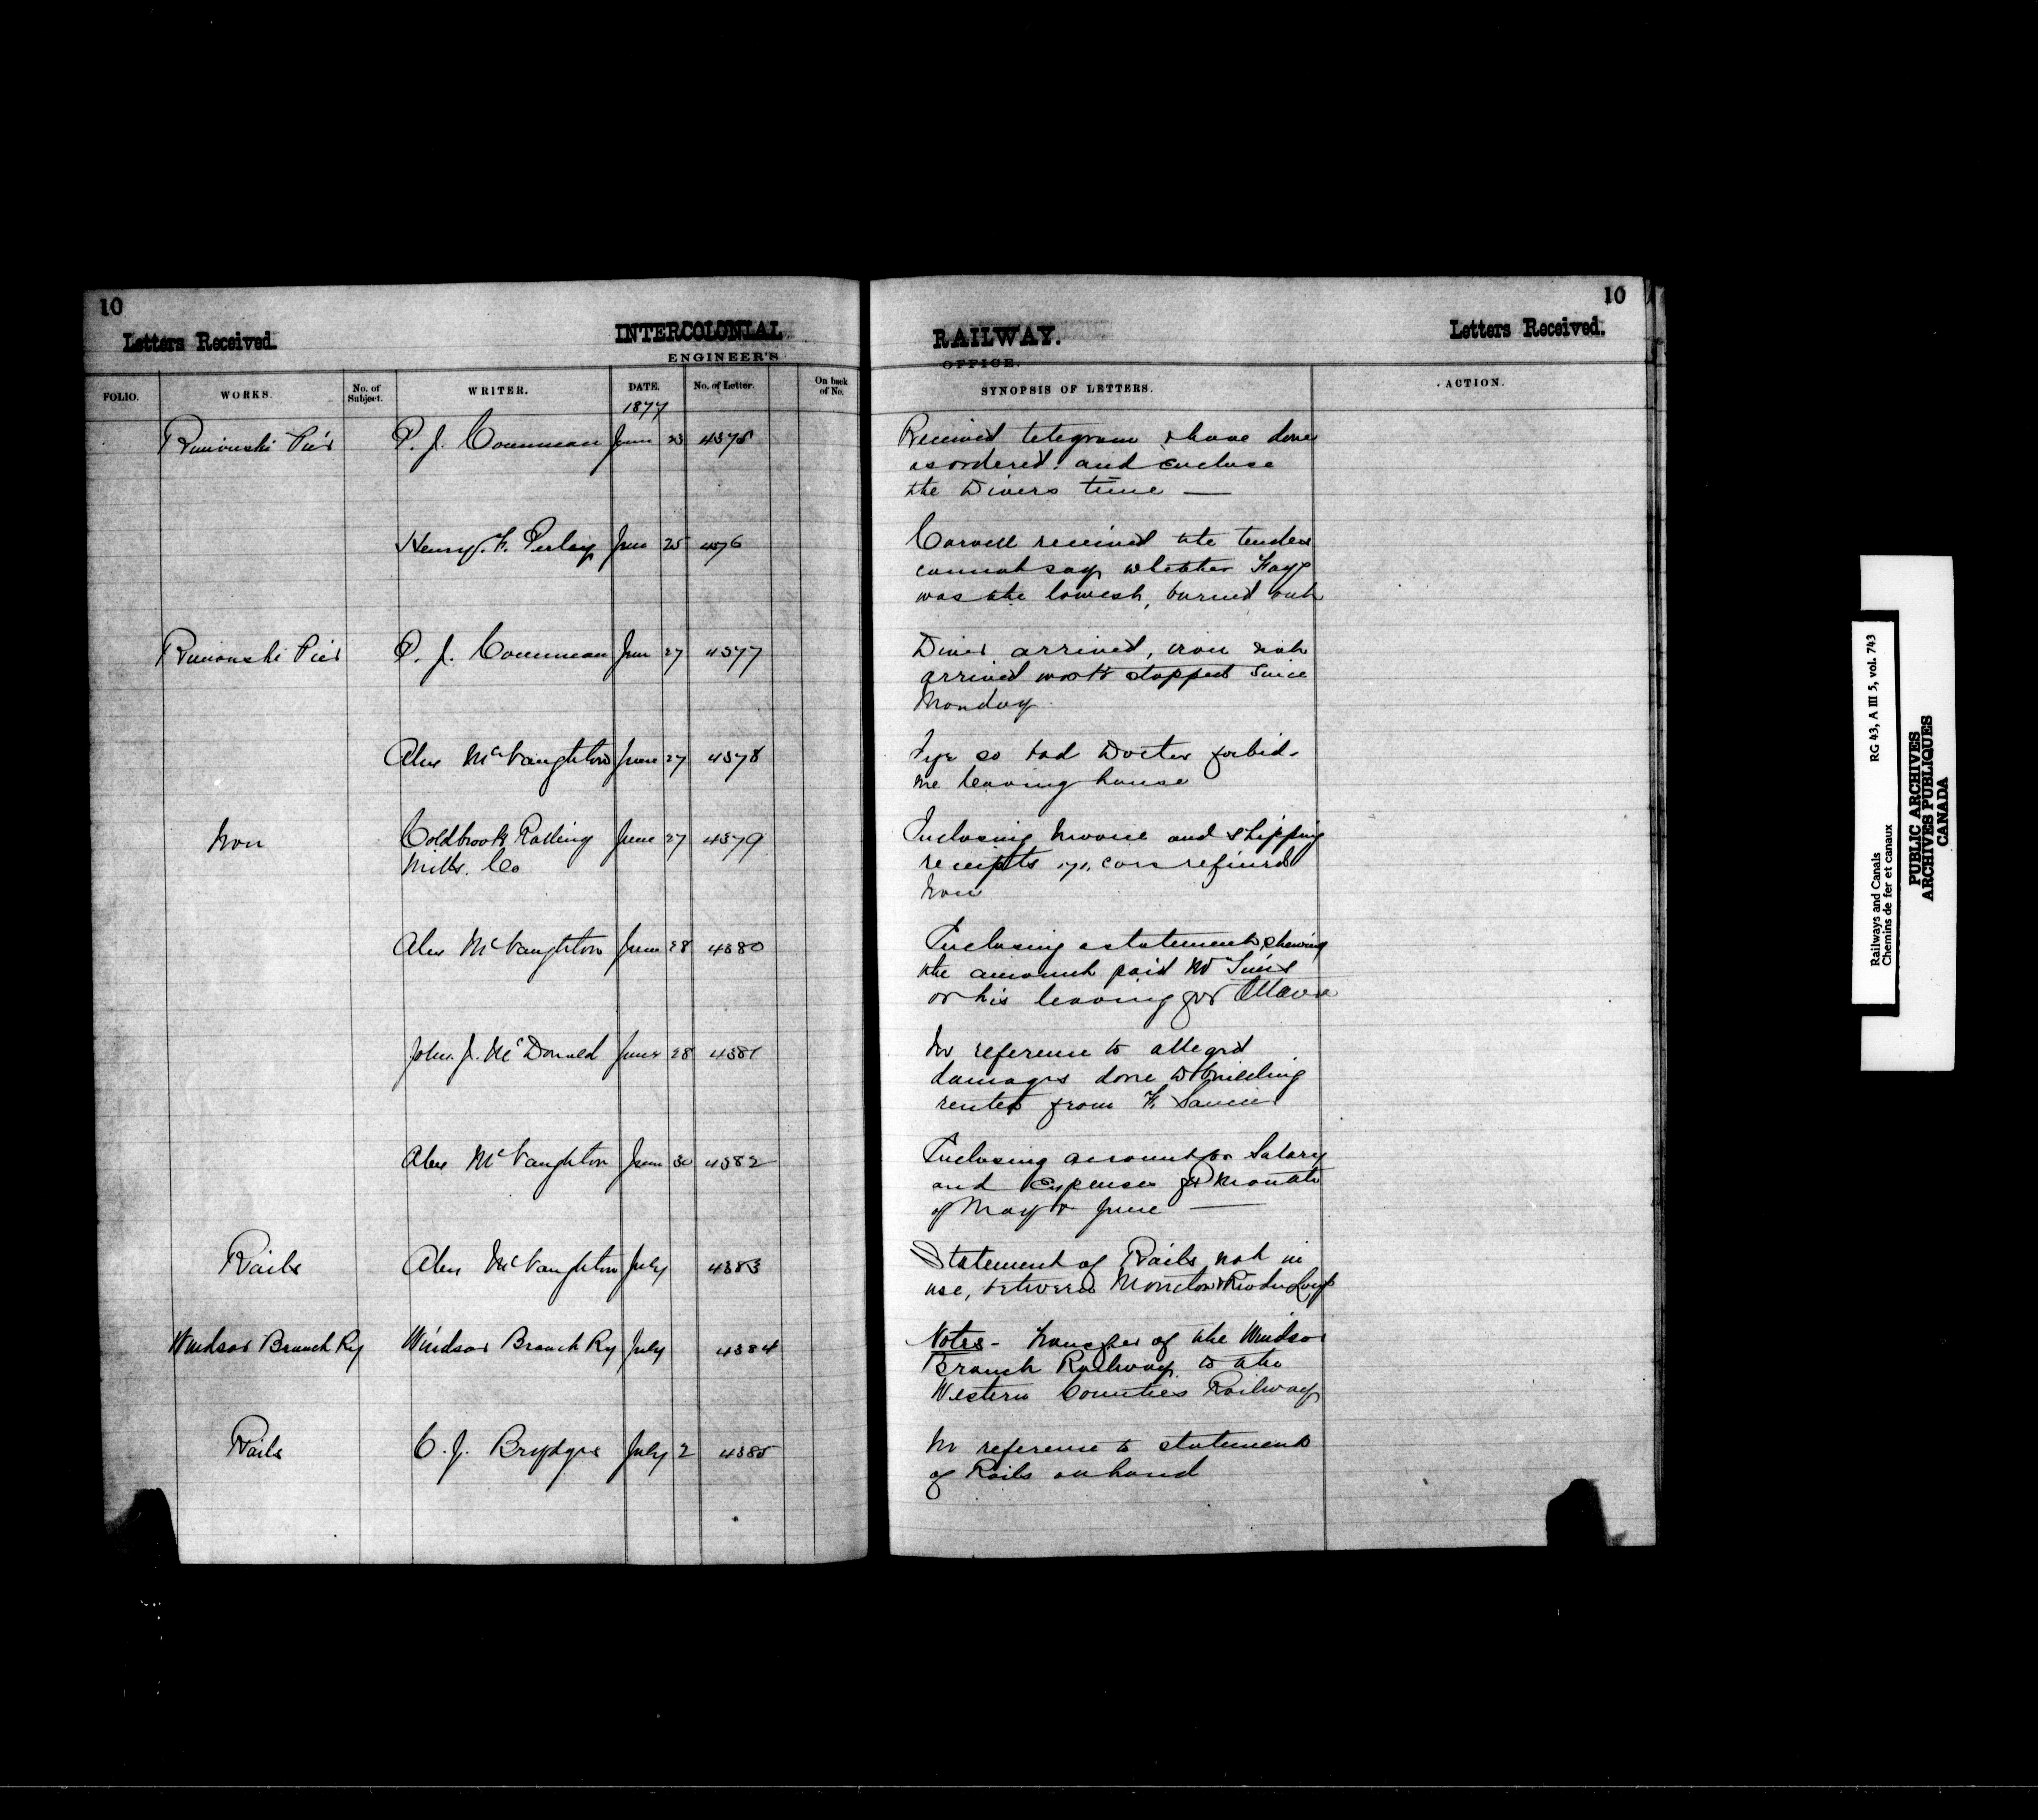 10
10
Letters Received.
INTERCOLONIAL
RAILWAY.
Letters Received.
ENGINEER'S
OFFICE.
FOLIO. WORKS. No. of Subject. WRITER. DATE. No. of Letter. On back of No. SYNOPSIS OF LETTERS. ACTION.
1877
Rimouski Pier P. J. Commeau June 23 4375 Received telegram & have done
as ordered. and enclose
the Divers time —
Henry F. Perley June 25 4376 Carvell received the tenders
cannot say whether
was the lowest, burned out
Rimouski Pier P. J. Commeau June 27 4377 Diver arrived, iron not
arrived work stopped since
Monday
Alex McNaughton June 27 4378 Eye so bad Doctor forbid-
me leaving house
Iron Coldbrook Rolling June 27 4379 Inclosing Invoice and shipping
Mills. Co receipts cars refined
Iron
Alex McNaughton June 28 4380 Inclosing a statement, shewing
the amount paid Mr
on his leaving for Ottawa
John. J. McDonald June 28 4381 In reference to alleged
damages done to building
rented from F.
Alex McNaughton June 30 4382 Inclosing account for Salary
and Expenses for months
of May & June —
Rails Alex McNaughton July 4383 Statement of Rails not in
use, between Moncton & Riv du Loup
Windsor Branch Ry Windsor Branch Ry July 4384 Notes - Transfer of the Windsor
Branch Railway to the
Western Counties Railway
Rails C. J. Brydges July 2 4385 In reference to statement
of Rails on hand
Railways and Canals RG 43, A III 5, vol. 743
Chemins de fer et canaux
PUBLIC ARCHIVES
ARCHIVES PUBLIQUES
CANADA